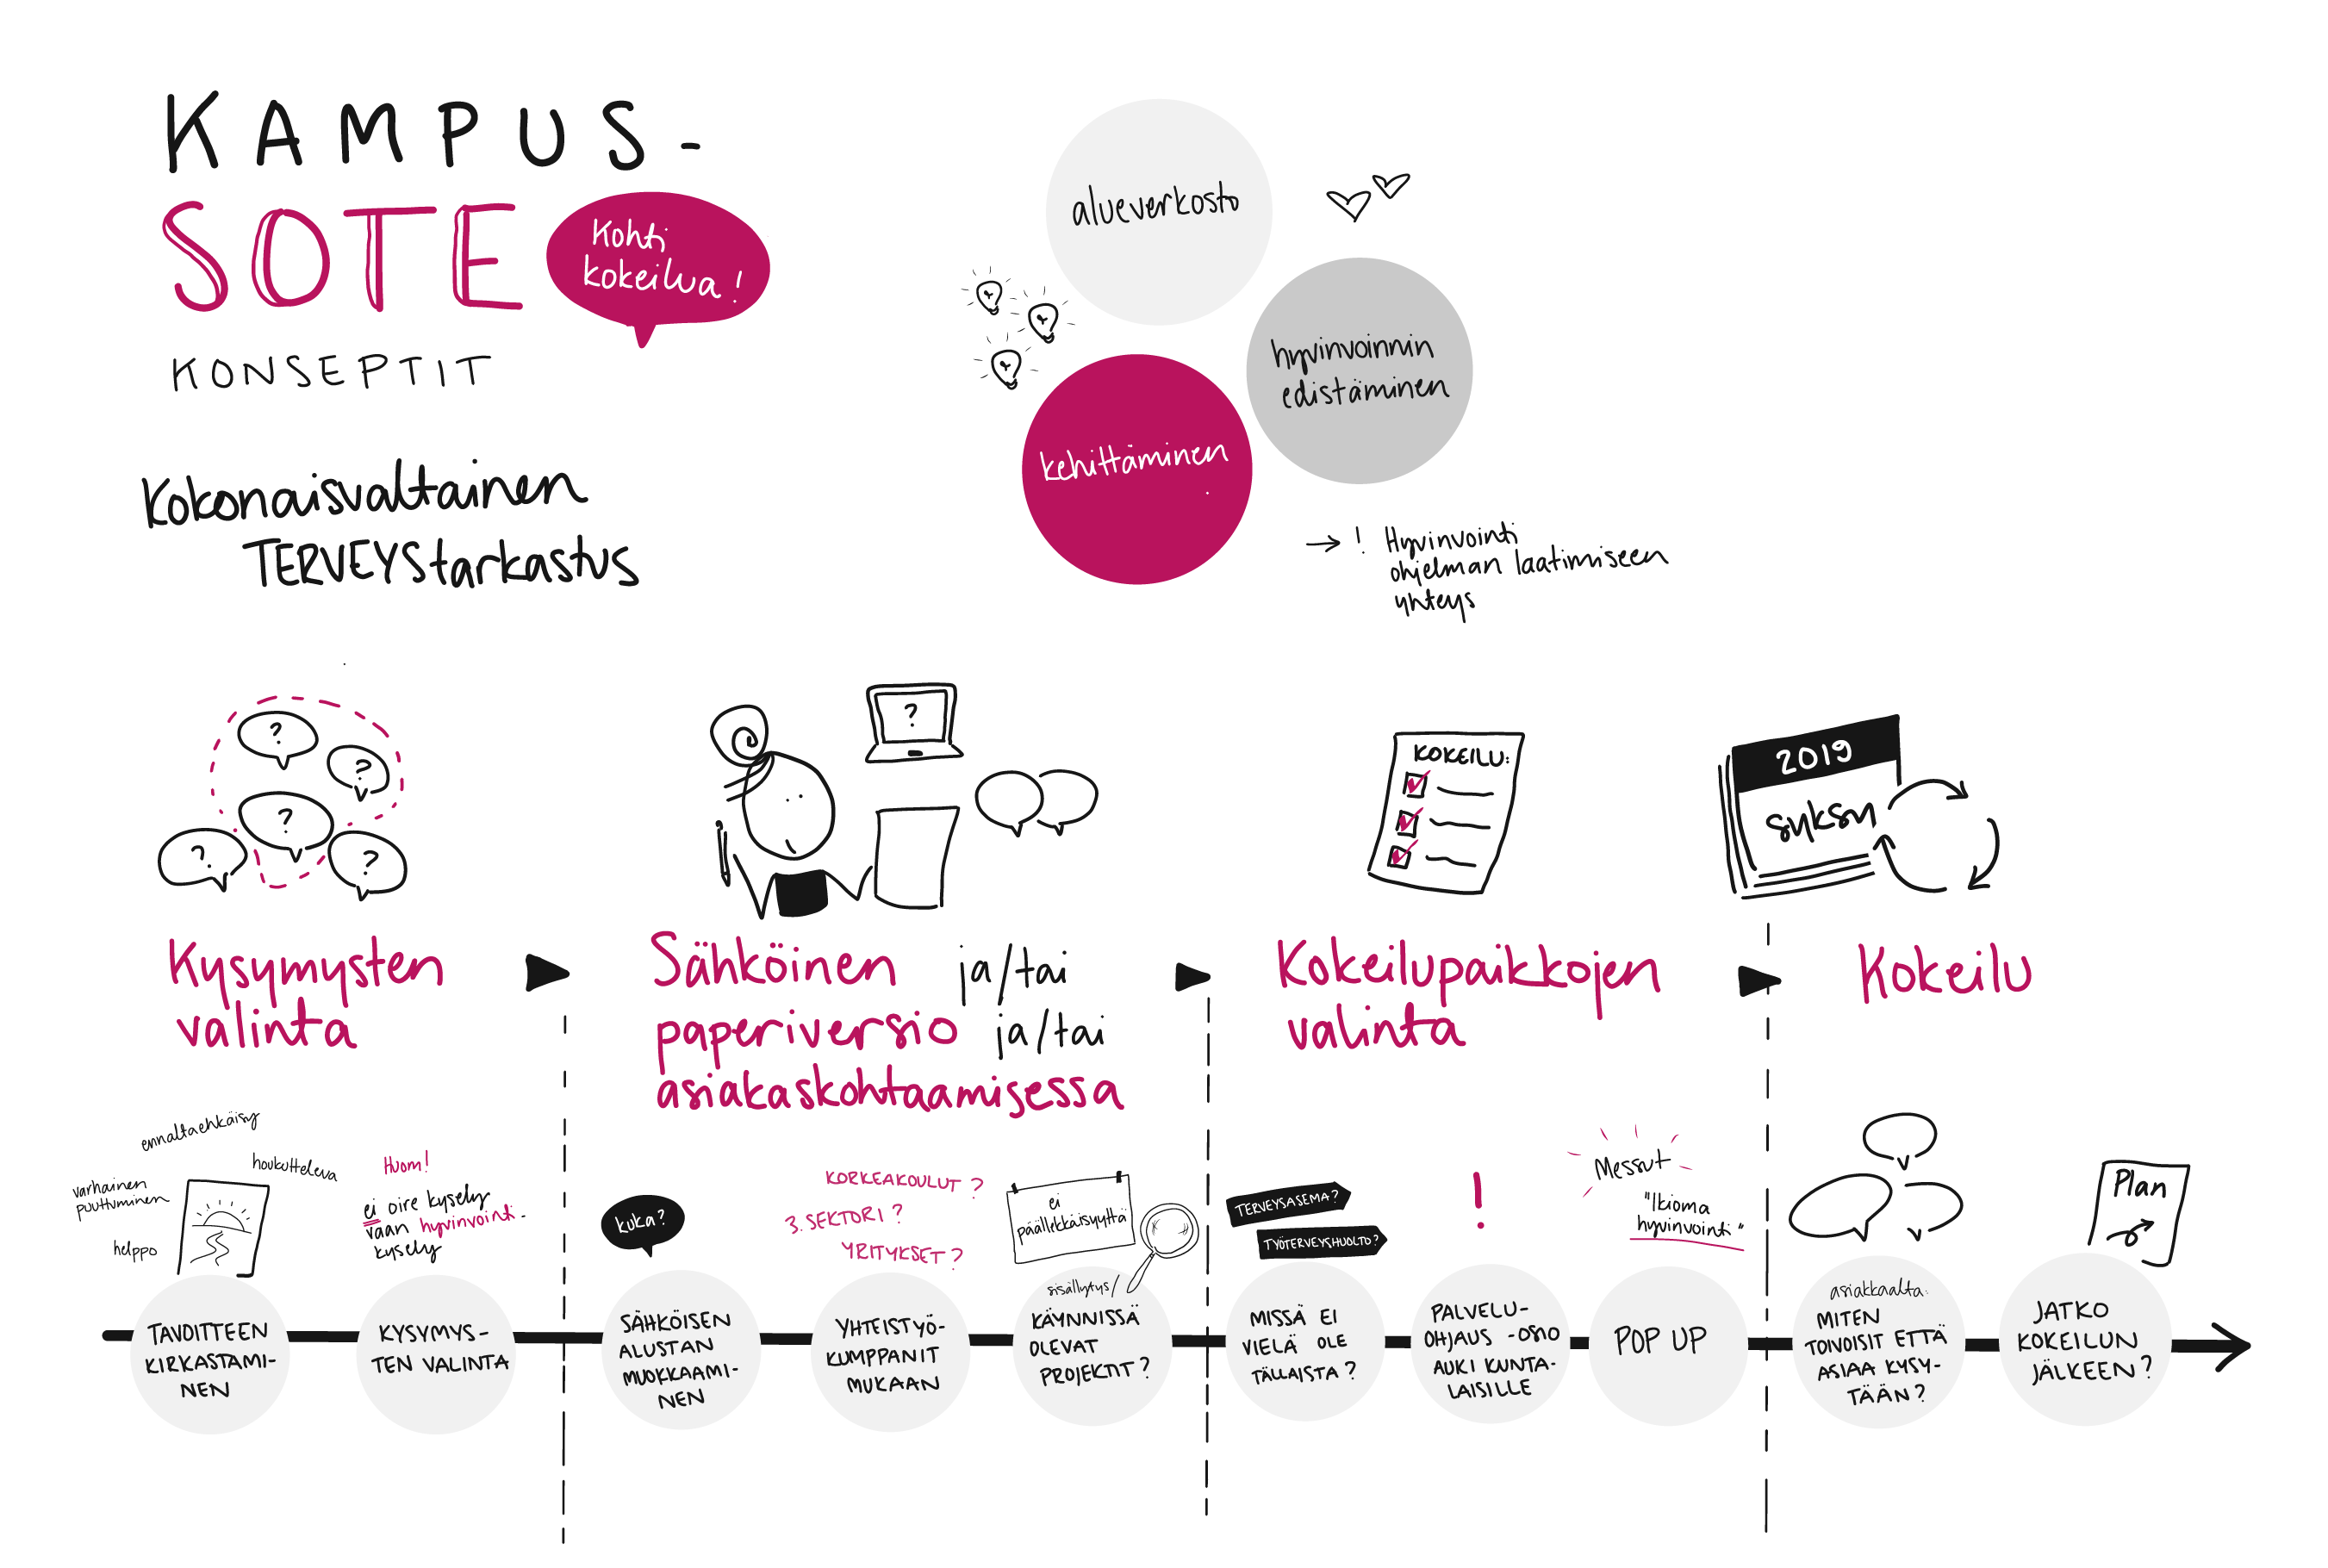 KAMPUS-
SOTE
Kohti
kokeilua!
KONSEPTIT
Kokonaisvaltainen
TERVEYStarkastus
alueverkosto
hyvinvoinnin
edistäminen
kehittäminen
! Hyvinvointi
ohjelman laatimiseen
yhteys
?
?
?
?
?
?
KOKEILU:
2019
syksy
Kysymysten
valinta
Sähköinen ja/tai
paperiversio ja/tai
asiakaskohtaamisessa
Kokeilupaikkojen
valinta
Kokeilu
ennaltaehkäisy
houkutteleva
varhainen
puuttuminen
helppo
Huom!
ei oire kysely
vaan hyvinvointi-
kysely
kuka?
KORKEAKOULUT?
3. SEKTORI?
YRITYKSET?
ei
päällekkäisyyttä
TERVEYSASEMA?
TYÖTERVEYSHUOLTO?
!
Messut
"Ikioma
hyvinvointi"
Plan
TAVOITTEEN
KIRKASTAMI-
NEN
KYSYMYS-
TEN VALINTA
SÄHKÖISEN
ALUSTAN
MUOKKAAMI-
NEN
YHTEISTYÖ-
KUMPPANIT
MUKAAN
sisällytys/
KÄYNNISSÄ
OLEVAT
PROJEKTIT?
MISSÄ EI
VIELÄ OLE
TÄLLAISTA?
PALVELU-
OHJAUS -OSIO
AUKI KUNTA-
LAISILLE
POP UP
asiakkaalta:
MITEN
TOIVOISIT ETTÄ
ASIAA KYSY-
TÄÄN?
JATKO
KOKEILUN
JÄLKEEN?